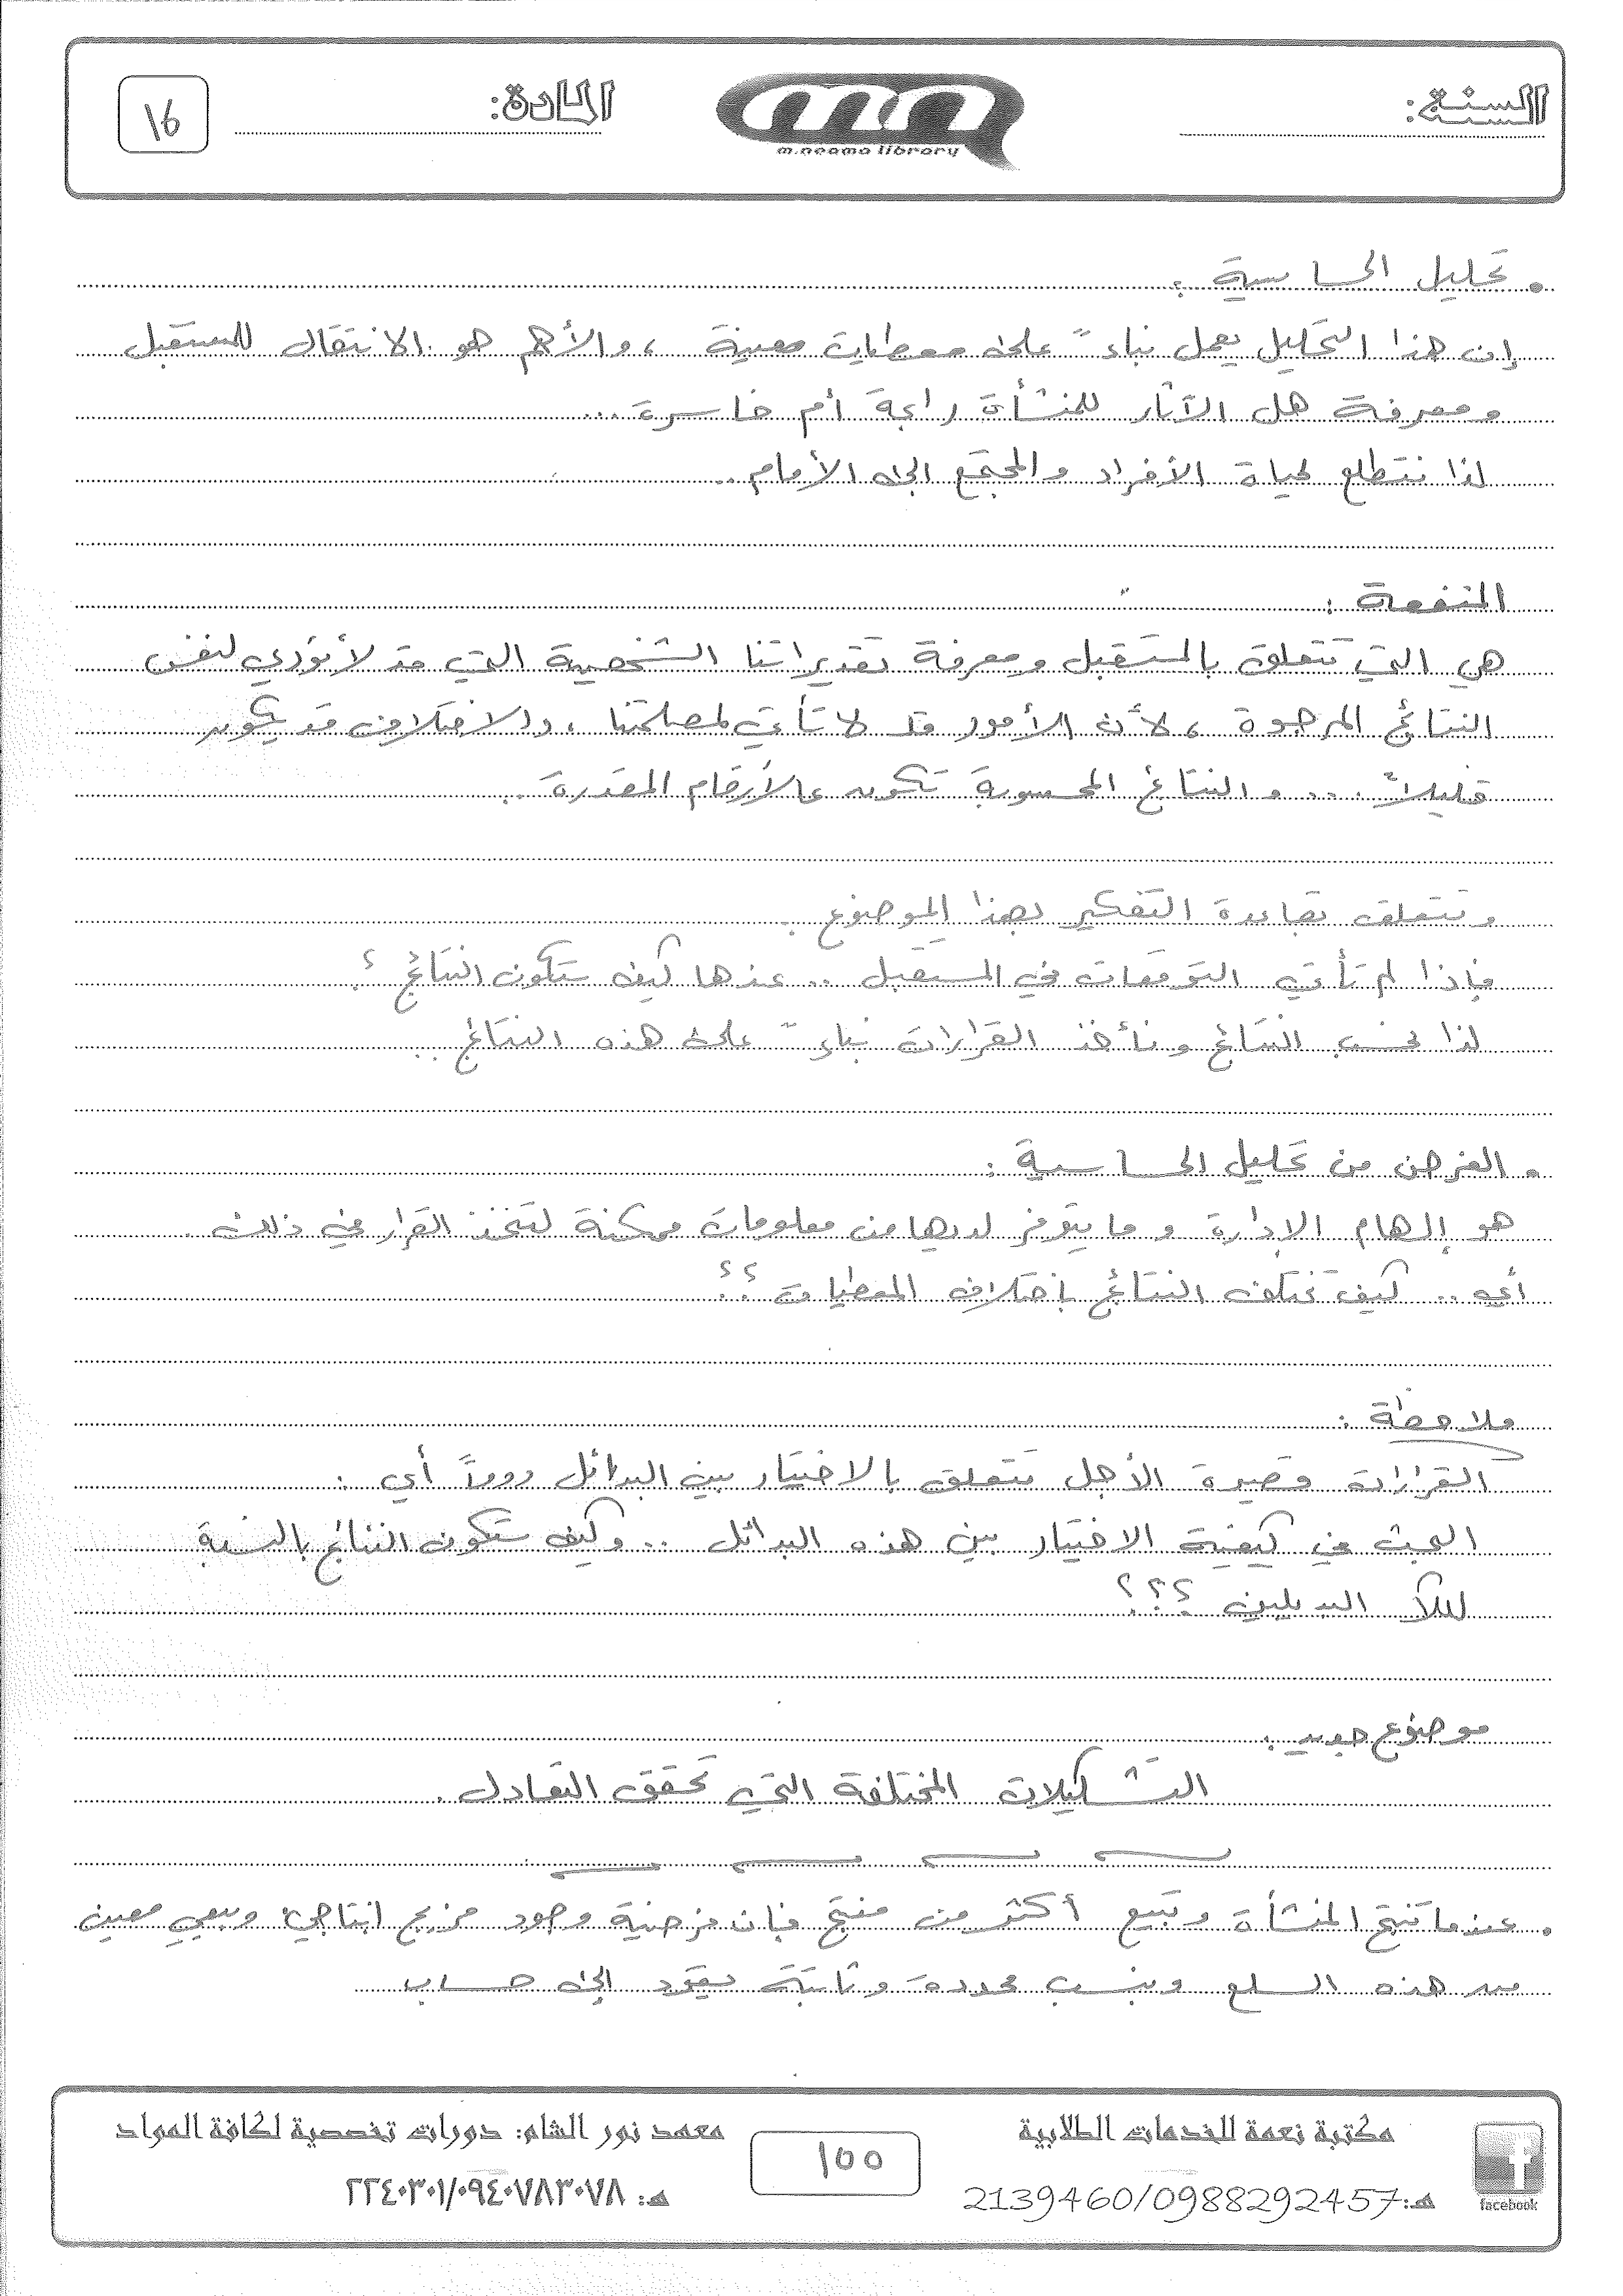 السنة:
m.neama library
المادة:
١٦
• تحليل الحساسية :
إن هذا التحليل يعمل بناءً على معطيات معينة ، والأهم هو الانتقال للمستقبل
ومعرفة هل الآثار للمنشأة رابحة أم خاسرة ...
لذا نتطلع لحياة الأفراد والمجتمع الى الأمام ..
المنفعة :
هي التي تتعلق بالمستقبل ومعرفة تقديراتنا الشخصية التي قد لا تؤدي لنفس
النتائج المرجوة ، لأن الأمور قد لا تأتي لمصلحتنا ، والاختلاف قد يكون
قليلاً ... و النتائج المحسوبة تكون عالأرقام المقدرة ..
وتتعلق بقاعدة التفكير بهذا الموضوع .
فإذا لم تأتي التوقعات في المستقبل .. عندها كيف ستكون النتائج ؟
لذا نحسب النتائج ونأخذ القرارات بناءً على هذه النتائج ..
• الغرض من تحليل الحساسية :
هو إلهام الإدارة و ما يتوفر لديها من معلومات ممكنة لتتخذ القرار في ذلك .
أي .. كيف تختلف النتائج بإختلاف المعطيات ؟؟
ملاحظة :
القرارات قصيرة الأجل تتعلق بالاختيار بين البدائل دوماً أي :
البحث في كيفية الاختيار بين هذه البدائل .. وكيف ستكون النتائج بالنسبة
لكلا البديلين ؟؟؟
موضوع جديد :
التشكيلات المختلفة التي تحقق التعادل .
• عندما تنتج المنشأة وتبيع أكثر من منتج فإن فرضية وجود مزيج انتاجي وبيعي معين
من هذه السلع وبنسب محددة وثابتة يقود إلى حساب
مكتبة نعمة للخدمات الطلابية
معهد نور الشام: دورات تخصصية لكافة المواد
١٥٥
facebook
هـ: 2139460/0988292457
هـ: ٢٢٤٠٣٠١/٠٩٤٠٧٨٣٠٧٨